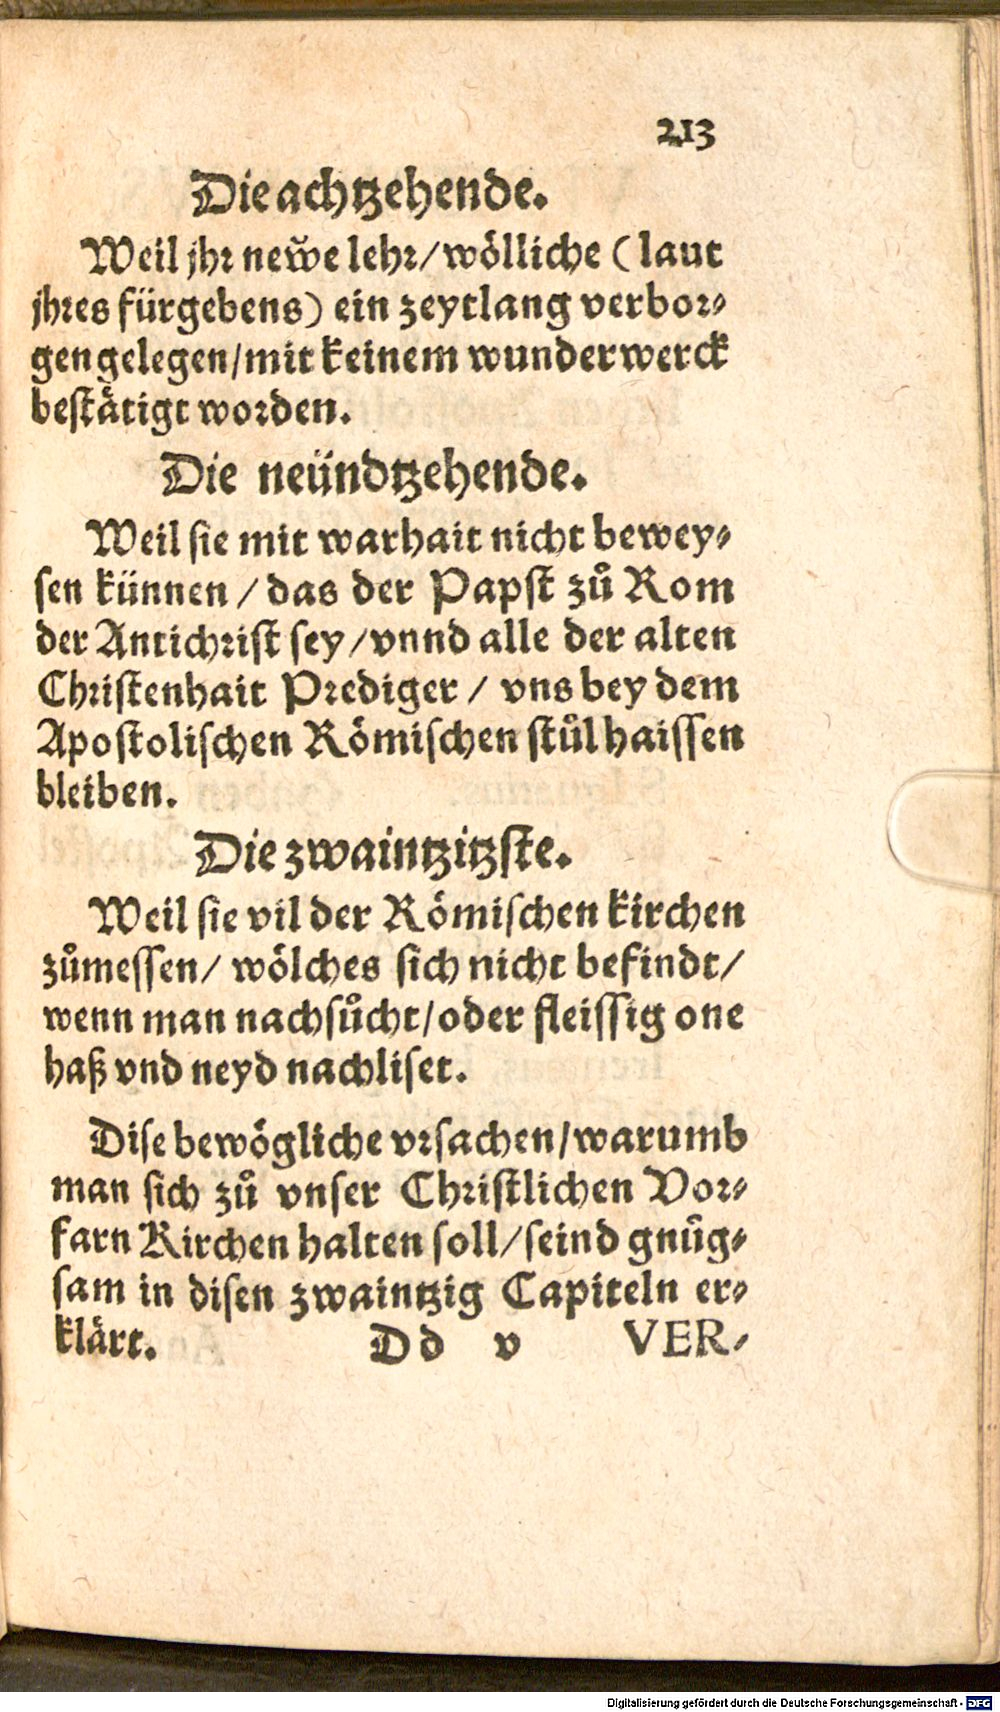 213
Die achtzehende.
Weil jhr neẅe lehr/wölliche (laut
jhres fürgebens) ein zeytlang verbor⸗
gen gelegen/mit keinem wunderwerck
bestätigt worden.
Die neündtzehende.
Weil sie mit warhait nicht bewey⸗
sen künnen / das der Papst zů Rom
der Antichrist sey/vnnd alle der alten
Christenhait Prediger / vns bey dem
Apostolischen Römischen stůl haissen
bleiben.
Die zwaintzitzste.
Weil sie vil der Römischen kirchen
zůmessen/ wölches sich nicht befindt/
wenn man nachsůcht/oder fleissig one
haß vnd neyd nachliset.
Dise bewögliche vrsachen/warumb
man sich zů vnser Christlichen Vor⸗
farn Kirchen halten soll/seind gnůg⸗
sam in disen zwaintzig Capiteln er⸗
klärt. Dd v VER-
Digitalisierung gefördert durch die Deutsche Forschungsgemeinschaft - DFG